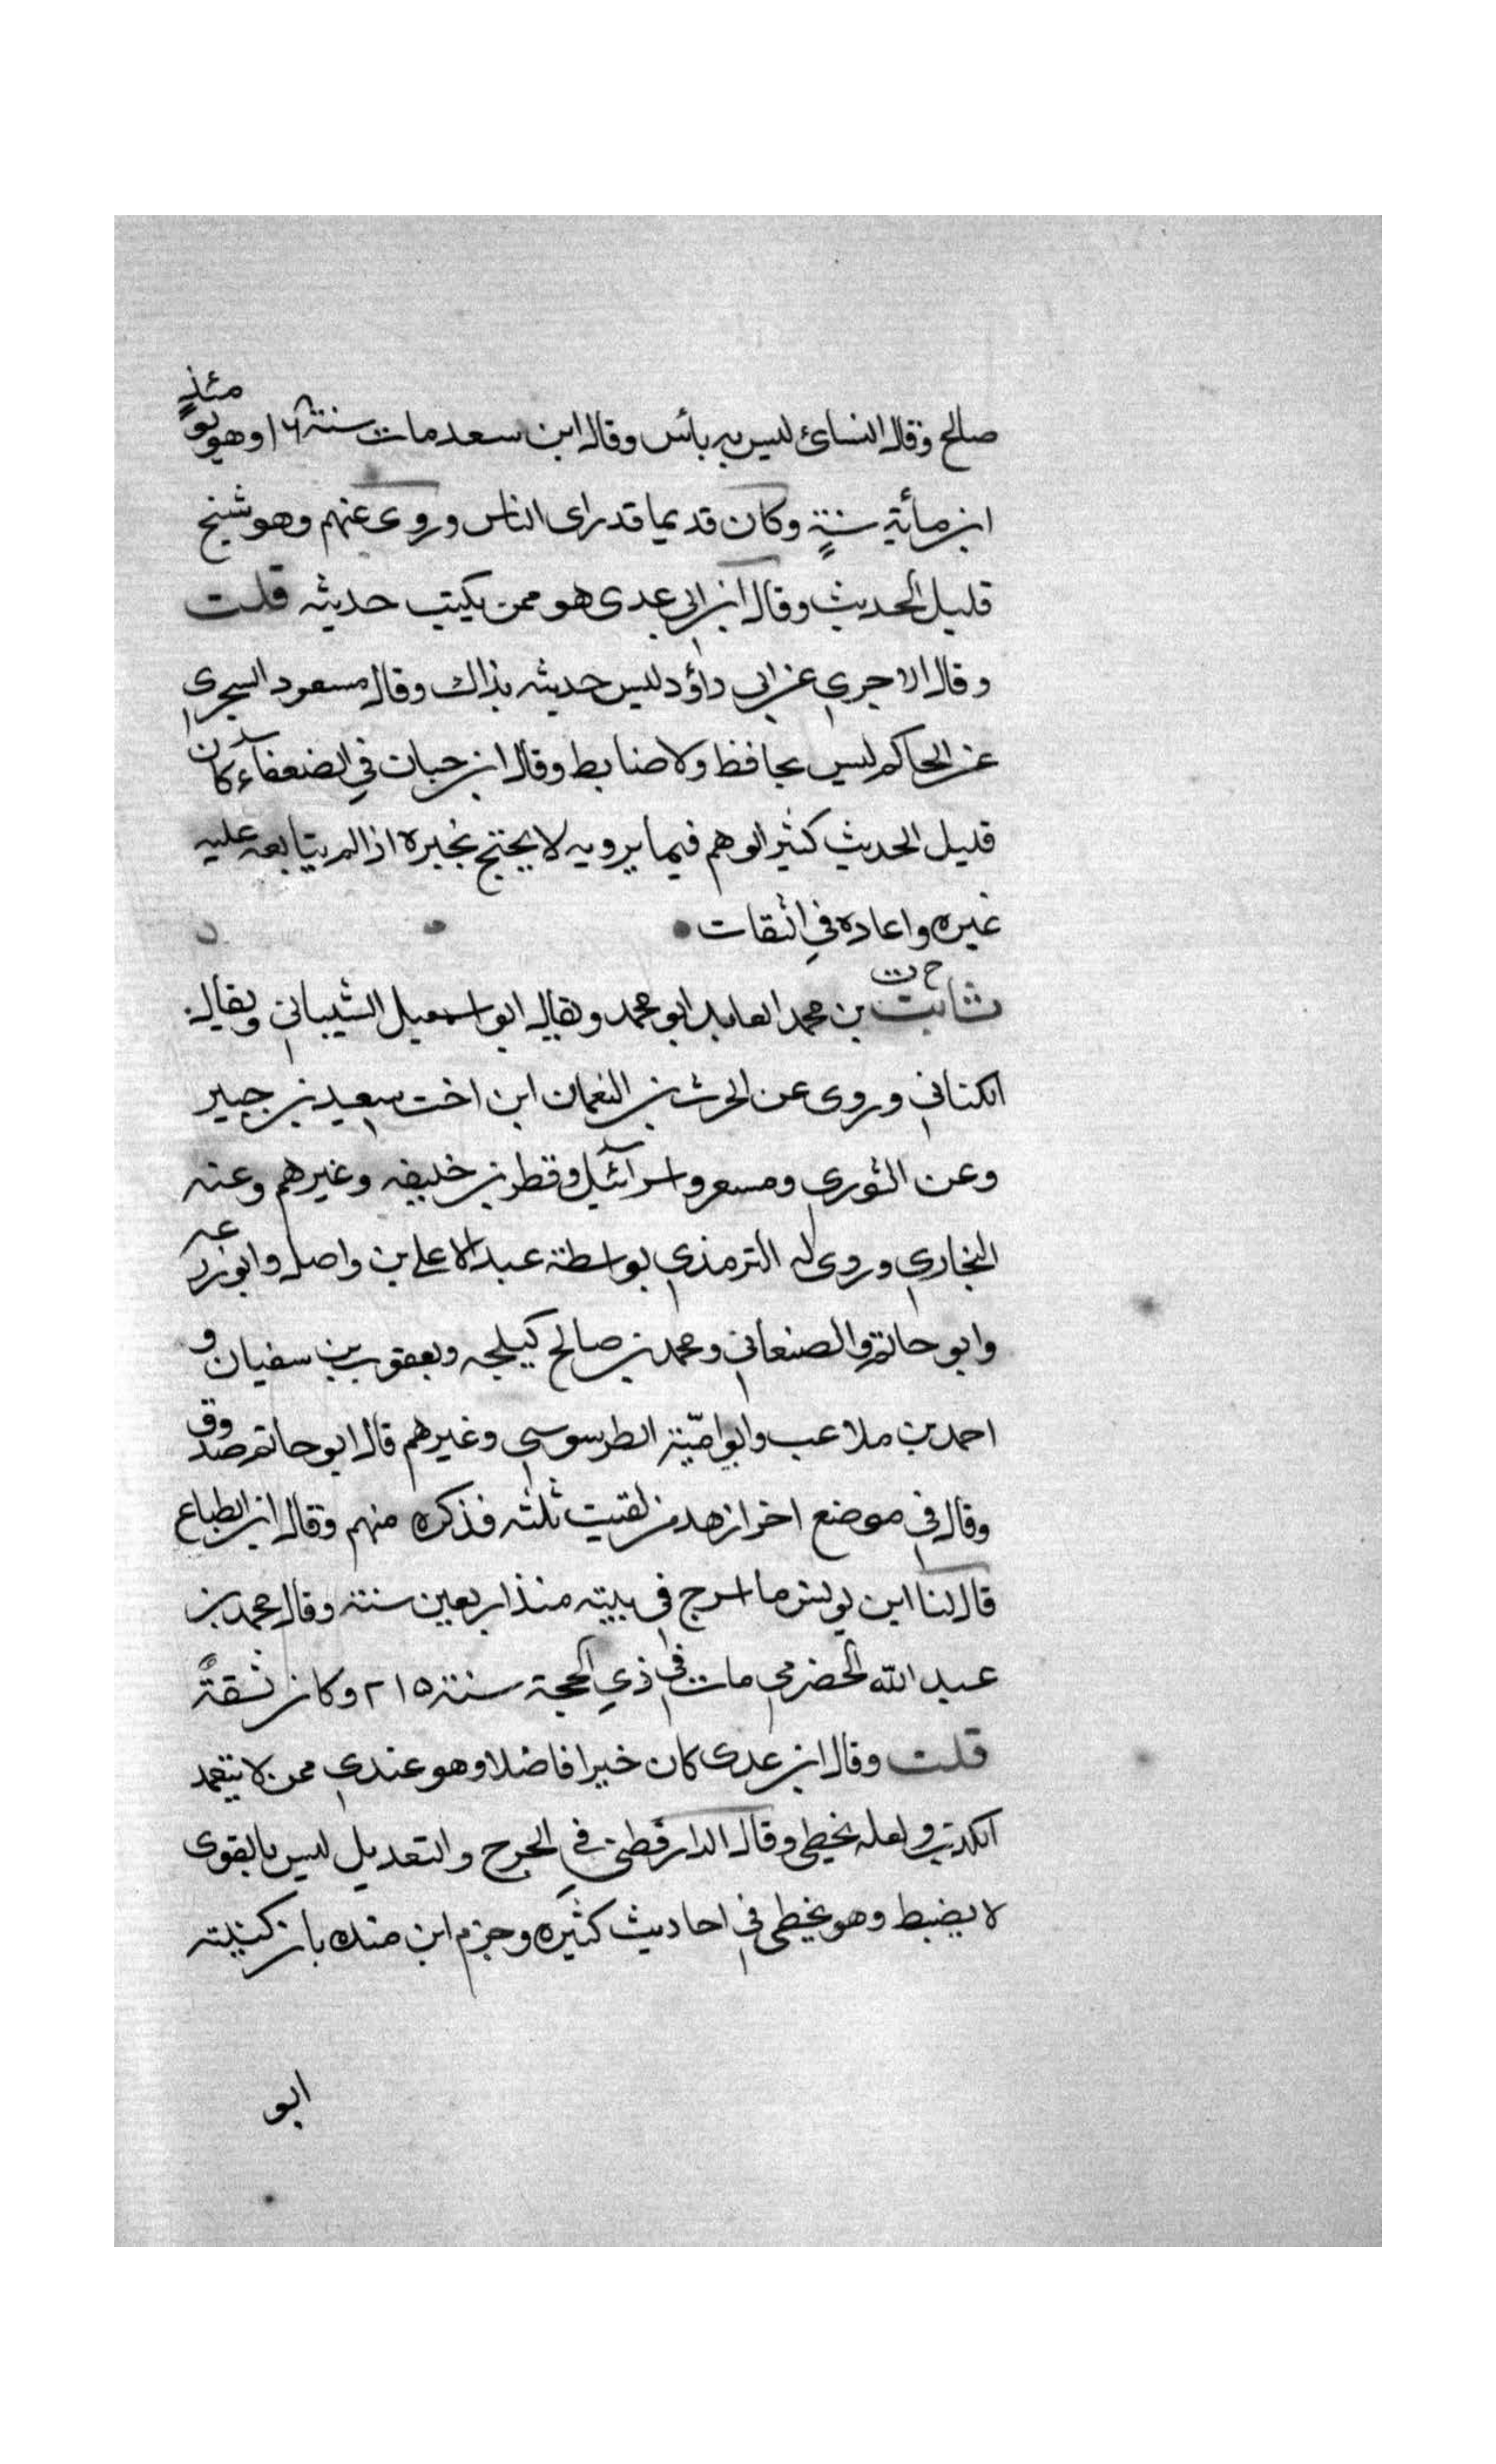 صالح وقال النسائ ليس به بائس وقال ابن سعد مات سنة ١٦٨ وهو يومئذٍ
ابن مأية سنةٍ وكان قديما قد راى الناس وروى عنهم وهو شيخ
قليل الحديث وقال ابن ابي عدى هو ممن يكتب حديثه قلت
وقال الاجري عن ابي داؤد ليس حديثه بذاك وقال مسعود السجرى
عن الحاكم ليس بحافظ ولا ضابط وقال ابن حبان في الضعفاء كان
قليل الحديث كثير الوهم فيما يرويه لا يحتج بخبره اذا لم يتابعه عليه
غيره واعاده في الثقات
خ ت
ثابت بن محمد العابد ابو محمد ويقال ابو اسمعيل الشيباني ويقال
الكناني وروى عن الحرث بن النعمان ابن اخت سعيد بن جبير
وعن الثوري ومسعر واسرآئيل وقطر بن خليفه وغيرهم وعنه
البخاري وروى له الترمذي بواسطة عبد الاعلى بن واصل وابوزرعه
وابو حاتم والصنعاني ومحمد بن صالح كيلجه ويعقوب بن سفيان و
احمد بن ملاعب وابو اميّة الطرسوسي وغيرهم قال ابو حاتم صدوق
وقال في موضع اخر ازهد من لقيت ثلثه فذكره منهم وقال ابن الطباع
قال لنا ابن يونس ما اسرج في بيته منذ اربعين سنة وقال محمد بن
عبد الله الحضرمي مات في ذي الحجة سنة ٢١٥ وكان ثقةً
قلت وقال ابن عدى كان خيرا فاضلا وهو عندي ممن لا يتعمد
الكذب ولعله يخطى وقال الدارقطني في الجرح والتعديل ليس بالقوى
لا يضبط وهو يخطى في احاديث كثيره وجزم ابن منده بان كنيته
ابو